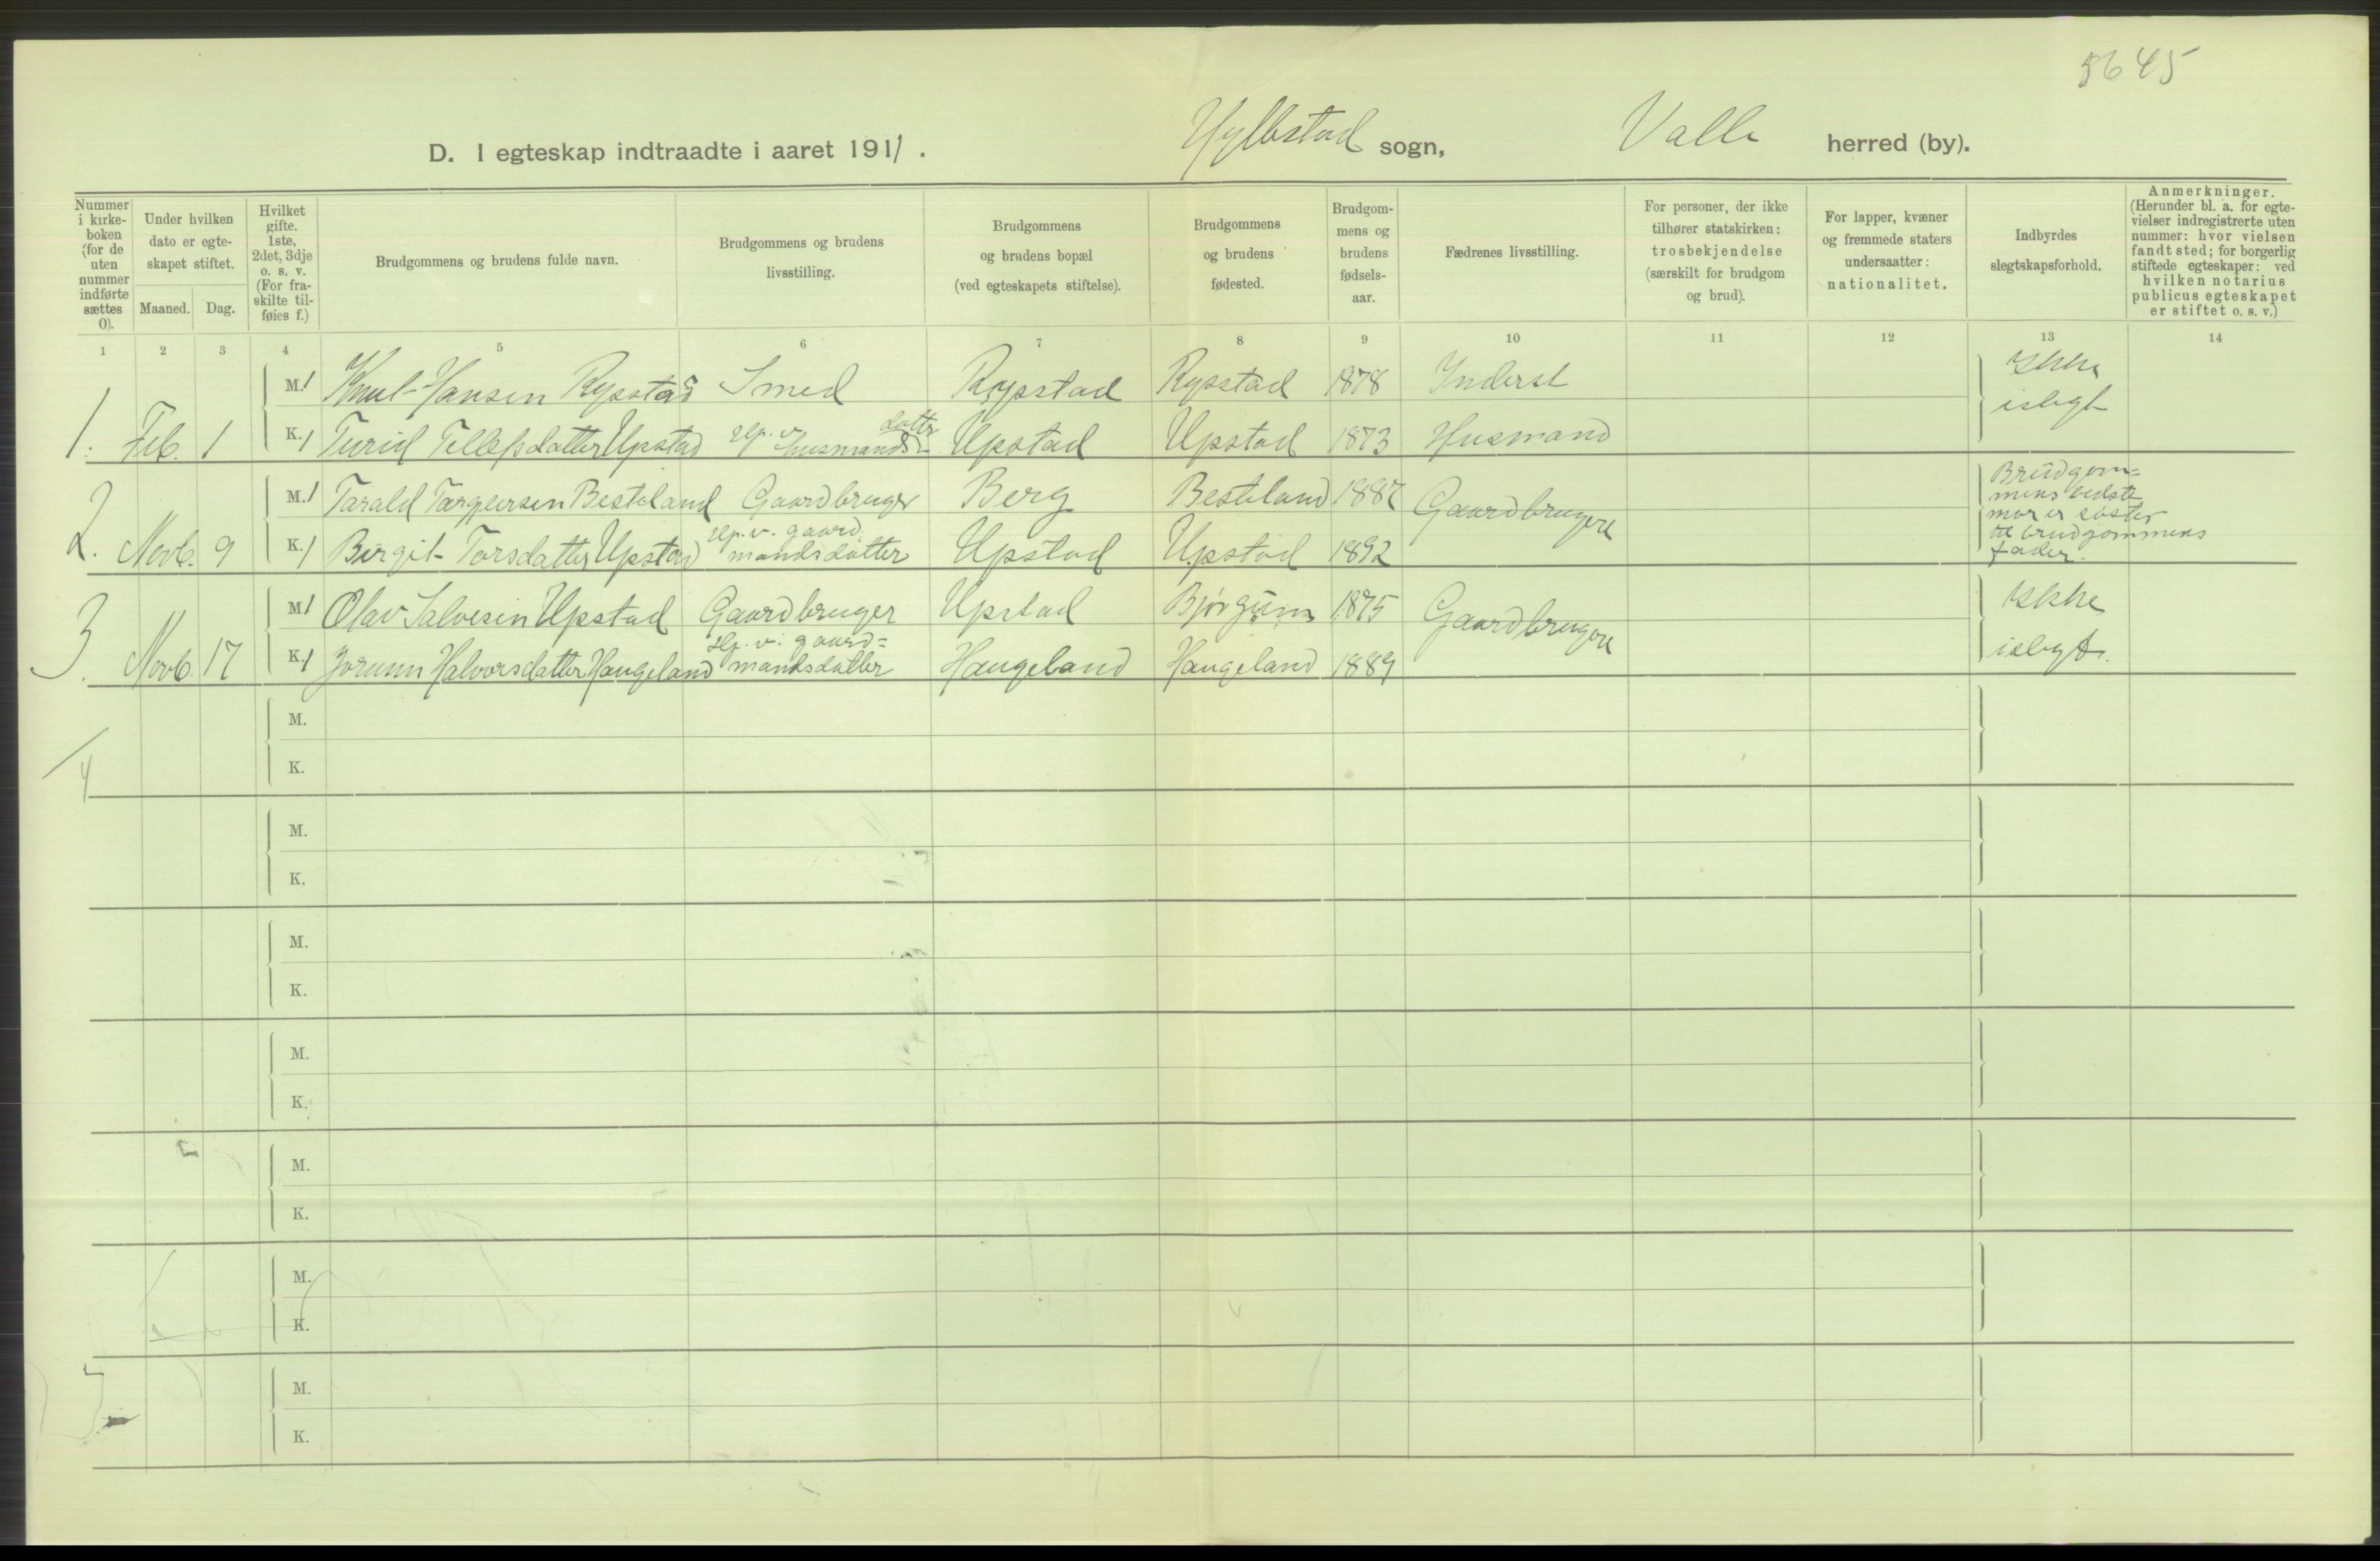 8645
D. I egteskap indtraadte i aaret 1911. Hylbstad sogn, Valle herred (by).
Nummer i kirke-boken (for de uten nummer indførte sættes 0).
Under hvilken dato er egte-skapet stiftet.
Maaned. Dag.
Hvilket gifte. 1ste, 2det, 3dje o. s. v. (For fra-skilte til-føies f.)
Brudgommens og brudens fulde navn.
Brudgommens og brudens livsstilling.
Brudgommens og brudens bopæl (ved egteskapets stiftelse).
Brudgommens og brudens fødested.
Brudgom-mens og brudens fødsels-aar.
Fædrenes livsstilling.
For personer, der ikke tilhører statskirken: trosbekjendelse (særskilt for brudgom og brud).
For lapper, kvæner og fremmede staters undersaatter: nationalitet.
Indbyrdes slegtskapsforhold.
Anmerkninger. (Herunder bl. a. for egte-vielser indregistrerte uten nummer: hvor vielsen fandt sted; for borgerlig stiftede egteskaper: ved hvilken notarius publicus egteskapet er stiftet o. s. v.)
1 2 3 4 5 6 7 8 9 10 11 12 13 14
M. 1 Knut Hansen Rysstad Smed Rysstad Rysstad 1878 Inderst Ikke islegt
1. Feb. 1 K. 1 Turid Tellefsdatter Upstad slp. v. husmandsdatter Upstad Upstad 1873 Husmand
M. 1 Tarald Targjersen Besteland Gaardbruger Berg Besteland 1887 Gaardbrugere Brudgom=
mens bedste
mor er søster
til brudgommens
fader.
2. Novb. 9 K. 1 Birgit Torsdatter Upstad slp. v. gaard mandsdatter Upstad Upstad 1892
M. 1 Olav Salvesen Upstad Gaardbruger Upstad Bjørgum 1875 Gaardbrugere Ikke islegt.
3. Novb. 17 K. 1 Jorunn Halvorsdatter Haugeland slp. v. gaard= mandsdatter Haugeland Haugeland 1889
M.
4 K.
M.
K.
M.
K.
M.
K.
M.
K.
M.
K.
M.
K.